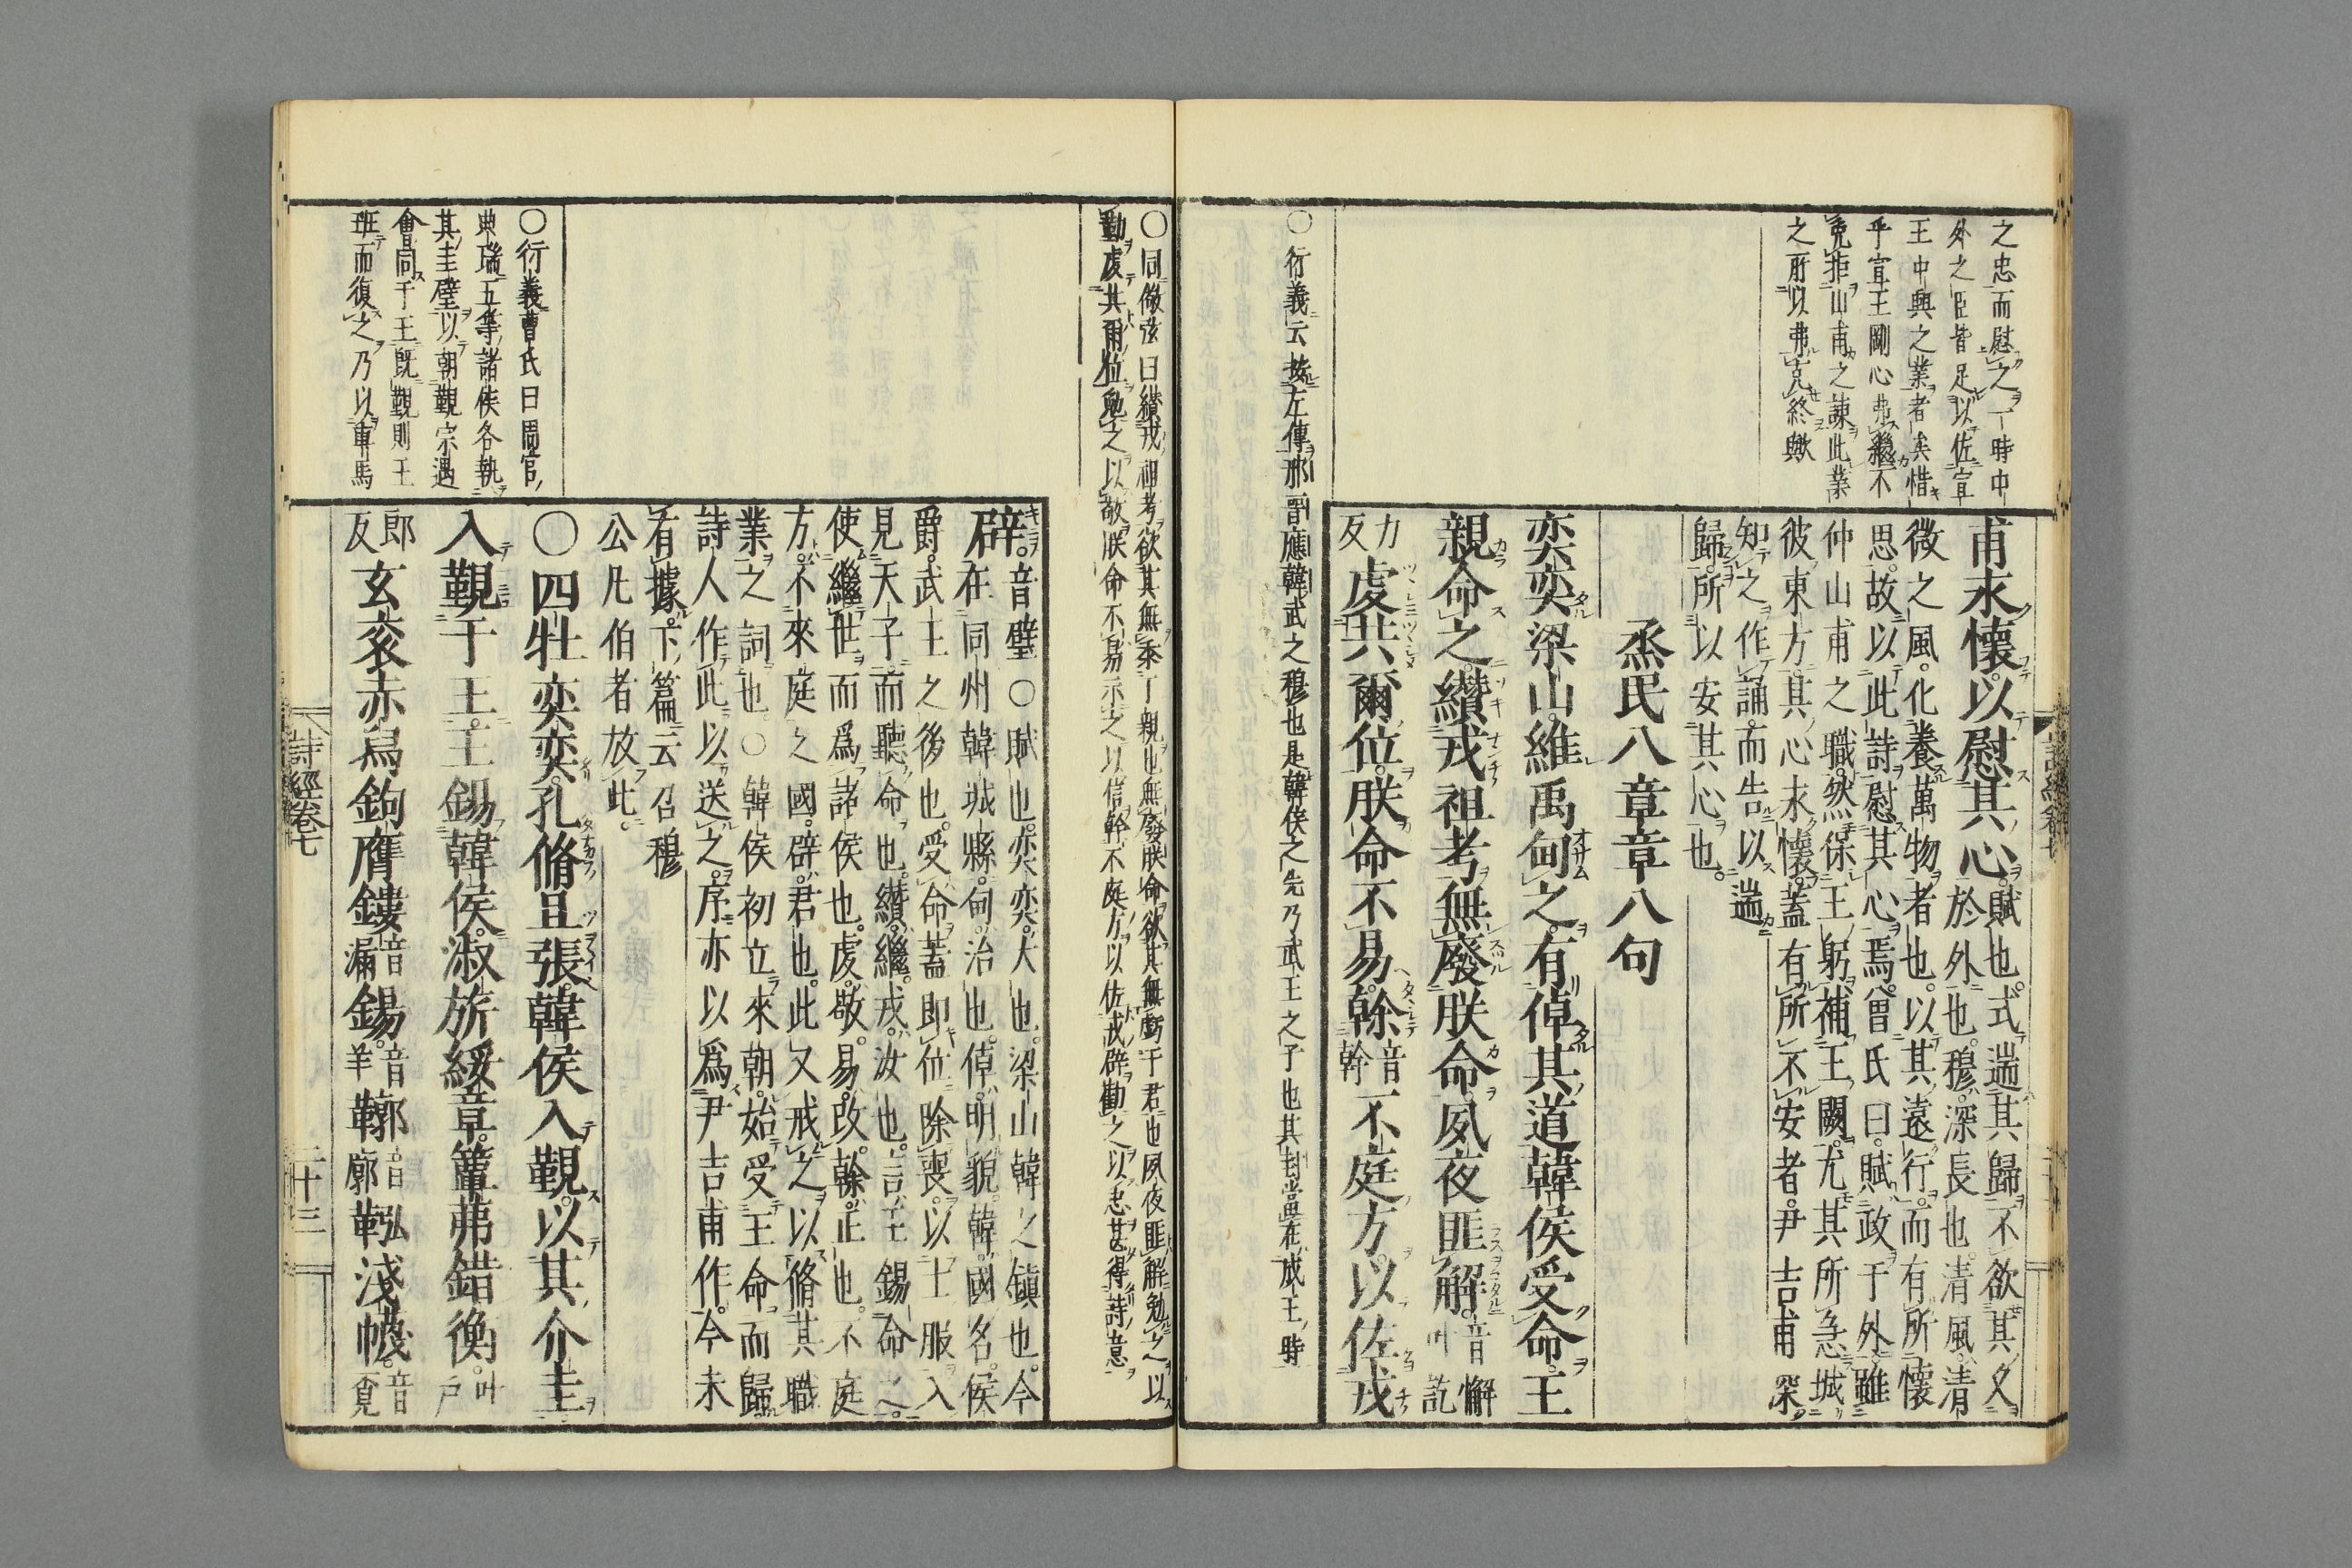 之忠而慰之一時中
外之臣皆足以佐宣
王中興之業者矣惜
乎宣王剛心弗繼不
免拒山甫之諫此業
之所以弗克終歟
甫永懷以慰其心賦也式遄其歸不欲其久
於外也穆深長也清風清
微之風化養萬物者也以其遠行而有所懷
思故以此詩慰其心焉曾氏曰賦政于外雖
仲山甫之職然保王躬補王闕尤其所急城
彼東方其心永懷蓋有所不安者尹吉甫深
知之作誦而告以遄
歸所以安其心也
烝民八章章八句
奕奕梁山維禹甸之有倬其道韓侯受命王
親命之纘戎祖考無廢朕命夙夜匪解音懈叶訖
力反虔共爾位朕命不易榦音幹不庭方以佐戎
〇衍義云按左傳邢晉應韓武之穆也是韓侯之先乃武王之子也其封當在成王時
〇同儆弦曰纘戎祖考欲其無忝丁親也無廢朕命欲其無斁于君也夙夜匪解勉之以
勤虔共爾位勉之以敬朕命不易示之以信榦不庭方以佐戎辟勸之以忠甚得詩意
辟音璧〇賦也奕奕大也梁山韓之鎮也今
在同州韓城縣甸治也倬明貌韓國名侯
爵武王之後也受命蓋即位除喪以士服入
見天子而聽命也纘繼戎汝也言王錫命之
使繼世而爲諸侯也虔敬易改榦正也不庭
方不來庭之國辟君也此又戒之以脩其職
業之詞也〇韓侯初立來朝始受王命而歸
詩人作此以送之序亦以爲尹吉甫作今未
有據下篇云召穆
公凡伯者放此
〇四牡奕奕孔脩且張韓侯入覲以其介圭
入覲于王王錫韓侯淑旂綏章簟茀錯衡叶戶
郎反玄衮赤舄鉤膺鏤音漏錫音羊鞹音廓鞃淺幭音覓
〇衍義曹氏曰周官
典瑞五等諸侯各執
其圭璧以朝覲宗遇
會同于王既覲則王
班而復之乃以車馬
詩經卷七
二十三